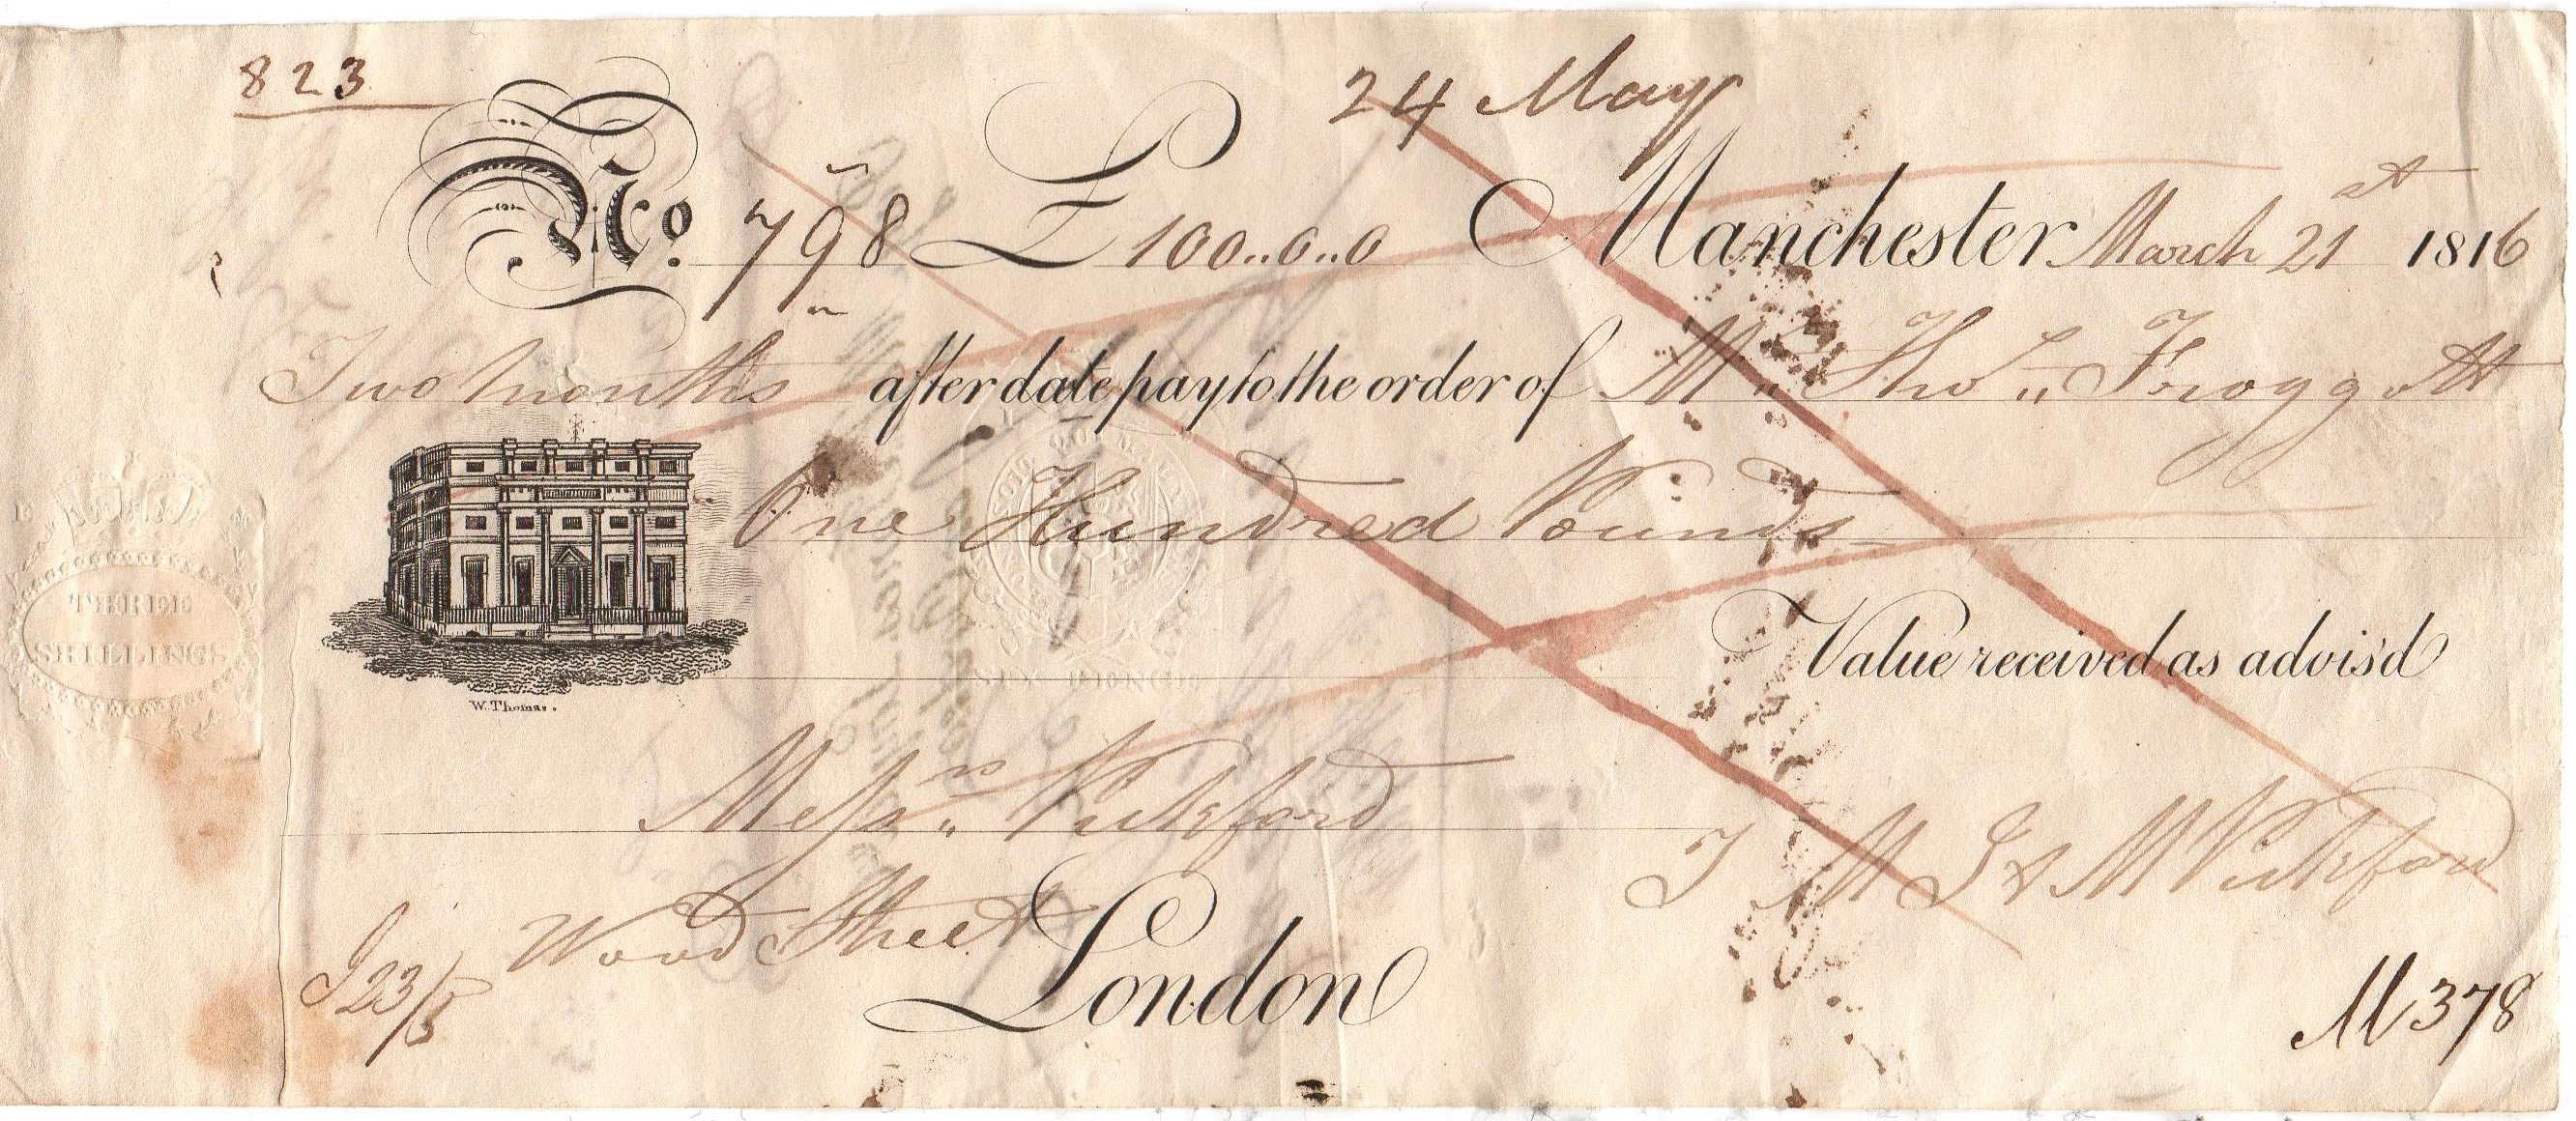 823
24 May
No. 798 £ 100..0..0 Manchester March 21st 1816
Two months after date pay to the order of Mr Thos Froggott
One Hundred Pounds
THREE
SHILLINGS
SIX PENCE
Value received as advis'd
W. Thomas.
Messrs Pickford
T M J & M Pickford
Wood Street London
J 23/5
M 378